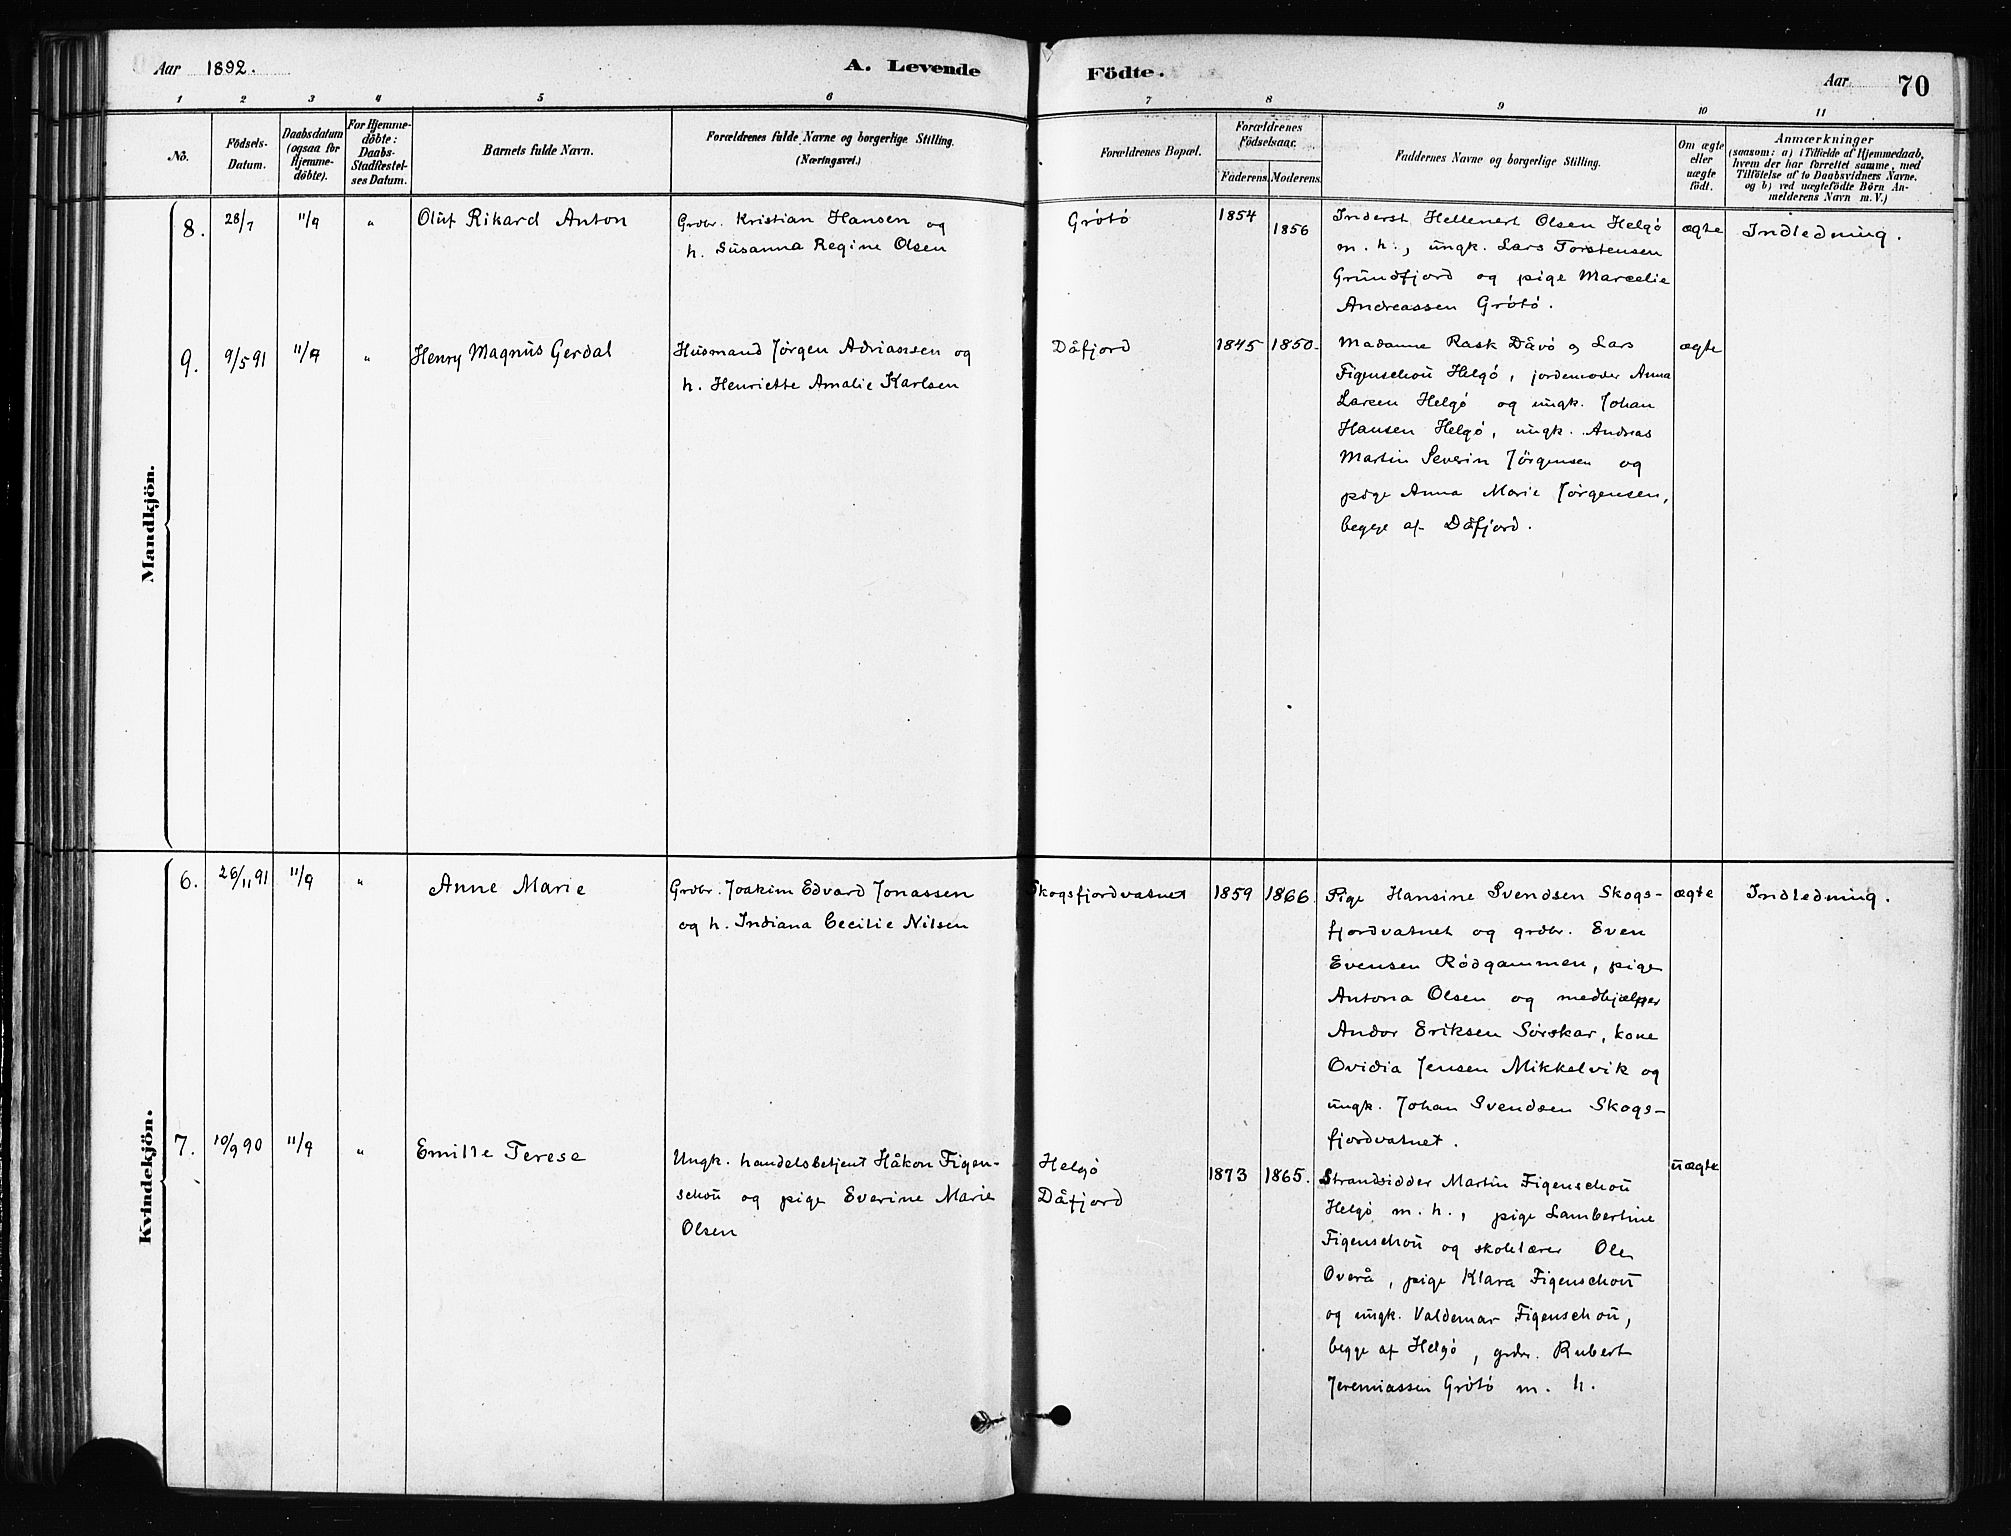 Aar 1892.
A. Levende
Födte.
Aar
70
1 2 3 4 5 6 7 8 9 10 11
No.
Födsels-
Datum.
Daabsdatum
(ogsaa for
Hjemme-
döbte).
For Hjemme-
döbte:
Daabs-
Stadfæstel-
ses Datum.
Barnets fulde Navn.
Forældrenes fulde Navne og borgerlige Stilling.
(Næringsvei.)
Forældrenes Bopæl.
Forældrenes
Födselsaar.
Faderens. Moderens.
Faddernes Navne og borgerlige Stilling.
Om ægte
eller
uægte
födt.
Anmærkninger
(saasom: a) i Tilfælde af Hjemmedaab,
hvem der har forrettet samme, med
Tilföielse af to Daabsvidners Navne.
og b) ved uægtefödte Börn An-
melderens Navn m. V.)
Mandkjön.
8. 28/7 11/9 " Oluf Rikard Anton
Grdbr. Kristian Hansen og
h. Susanna Regine Olsen
Grötö
1854 1856
Inderst Hellenert Olsen Helgö
m. h., ungk. Lars Torstensen
Grundfjord og pige Marcelie
Andreassen Grötö.
ægte
Indledning.
9. 9/5 91 11/9 " Henry Magnus Gerdal
Husmand Jörgen Adriansen og
h. Henriette Amalie Karlsen
Dåfjord
1845 1850.
Madamme Rask Dåvö og Lars
Figenschou Helgö, jordemoder Anna
Larsen Helgö og ungk. Johan
Hansen Helgö, ungk. Andreas
Martin Severin Jörgensen og
pige Anna Marie Jörgensen,
begge af Dåfjord.
ægte
Kvindekjön.
6. 26/11 91 11/9 " Anne Marie
Grdbr. Joakim Edvard Jonassen
og h. Indiana Cecilie Nilsen
Skogsfjordvatnet
1859 1866.
Pige Hansine Svendsen Skogs-
fjordvatnet og grdbr. Even
Evensen Rödgammen, pige
Antona Olsen og medhjælper
Andor Eriksen Sörskar, kone
Ovidia Jensen Mikkelvik og
ungk. Johan Svendsen Skogs-
fjordvatnet.
ægte
Indledning.
7. 10/9 90 11/9 " Emilie Terese
Ungk. handelsbetjent Håkon Figen-
schou og pige Everine Marie
Olsen
Helgö
Dåfjord
1873 1865.
Strandsidder Martin Figenschou
Helgö m. h., pige Lambertine
Figenschou og skolelærer Ole
Overå, pige Klara Figenschou
og ungk. Valdemar Figenschou,
begge af Helgö, grdbr. Rubert
Jeremiassen Grötö m. h.
uægte